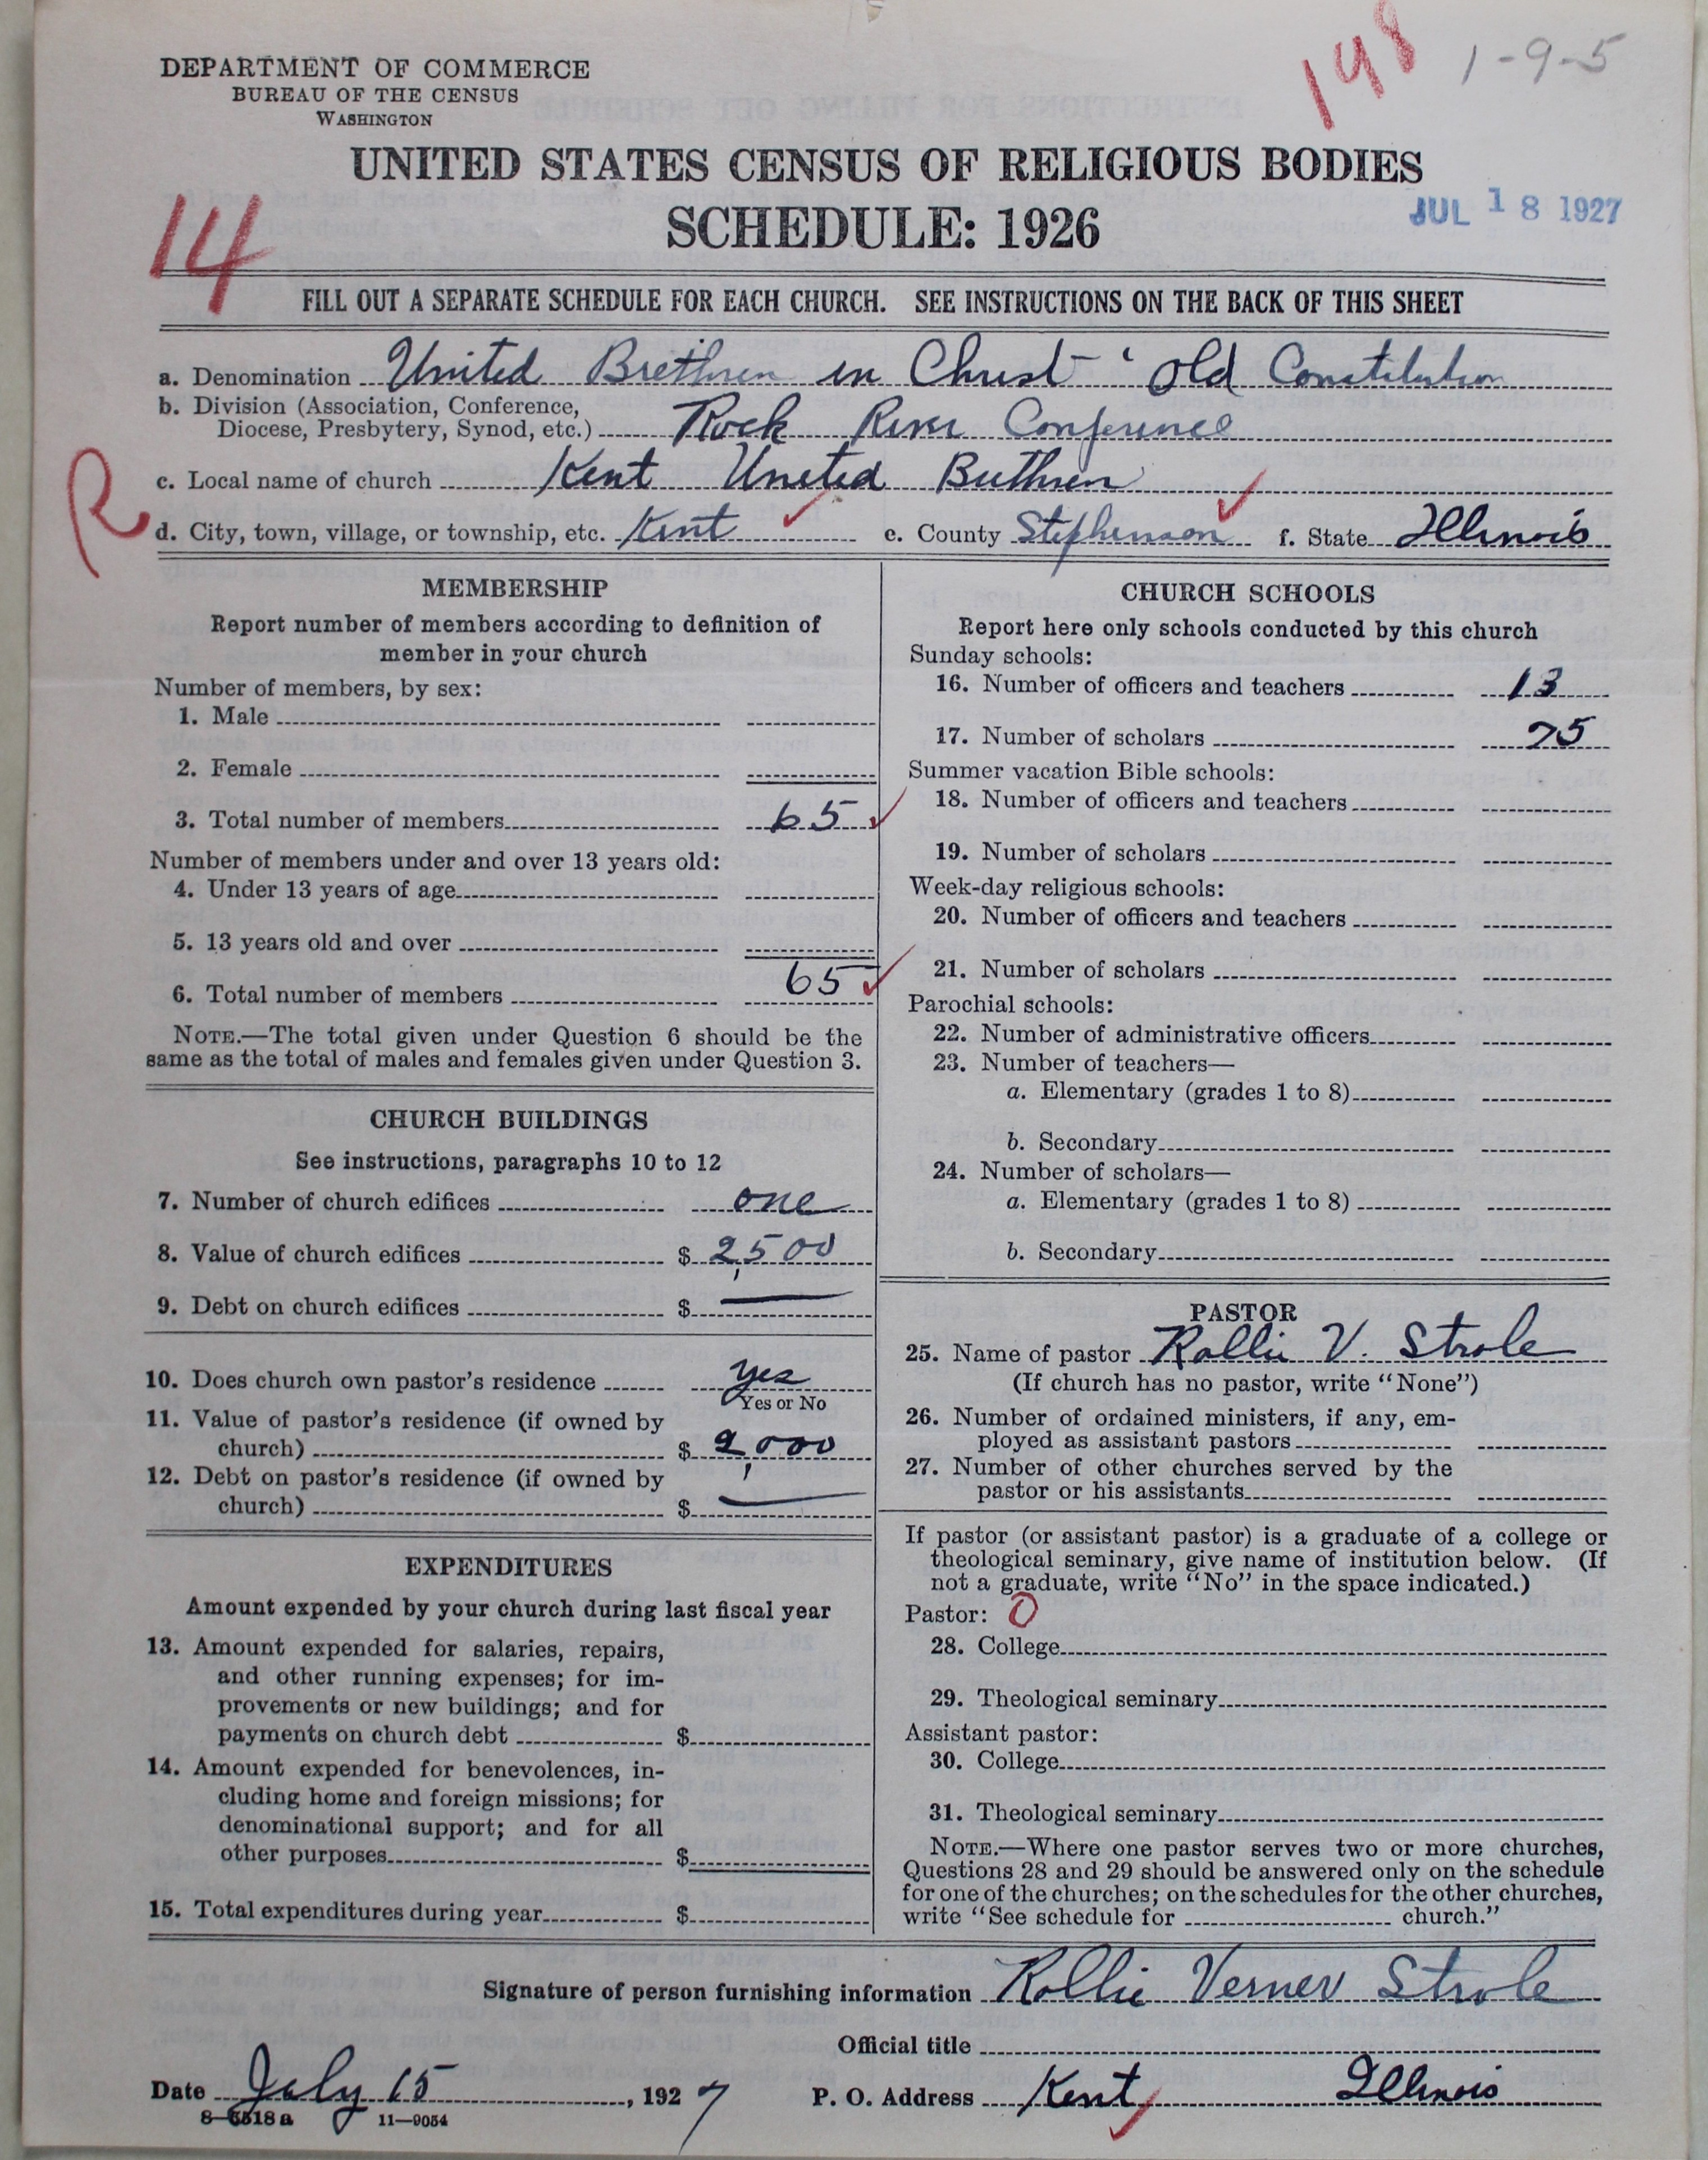 198 1-9-5
DEPARTMENT OF COMMERCE
BUREAU OF THE CENSUS
WASHINGTON
UNITED STATES CENSUS OF RELIGIOUS BODIES
SCHEDULE: 1926
JUL 18 1927
14
FILL OUT A SEPARATE SCHEDULE FOR EACH CHURCH. SEE INSTRUCTIONS ON THE BACK OF THIS SHEET
a. Denomination United Brethren in Christ "Old Constitution
b. Division (Association, Conference,
Diocese, Presbytery, Synod, etc.) Rock River Conference
c. Local name of church Kent United Brethren
R
d. City, town, village, or township, etc. Kent e. County Stephenson f. State Illinois
MEMBERSHIP
Report number of members according to definition of
member in your church
Number of members, by sex:
1. Male
2. Female
3. Total number of members 65
Number of members under and over 13 years old:
4. Under 13 years of age
5. 13 years old and over
6. Total number of members 65
NOTE.—The total given under Question 6 should be the
same as the total of males and females given under Question 3.
CHURCH BUILDINGS
See instructions, paragraphs 10 to 12
7. Number of church edifices one
8. Value of church edifices $ 2,500
9. Debt on church edifices $ —
10. Does church own pastor's residence yes
Yes or No
11. Value of pastor's residence (if owned by
church) $ 2,000
12. Debt on pastor's residence (if owned by
church) $ —
EXPENDITURES
Amount expended by your church during last fiscal year
13. Amount expended for salaries, repairs,
and other running expenses; for im-
provements or new buildings; and for
payments on church debt $
14. Amount expended for benevolences, in-
cluding home and foreign missions; for
denominational support; and for all
other purposes $
15. Total expenditures during year $
CHURCH SCHOOLS
Report here only schools conducted by this church
Sunday schools:
16. Number of officers and teachers 13
17. Number of scholars 75
Summer vacation Bible schools:
18. Number of officers and teachers
19. Number of scholars
Week-day religious schools:
20. Number of officers and teachers
21. Number of scholars
Parochial schools:
22. Number of administrative officers
23. Number of teachers—
a. Elementary (grades 1 to 8)
b. Secondary
24. Number of scholars—
a. Elementary (grades 1 to 8)
b. Secondary
PASTOR
25. Name of pastor Rollie V. Strole
(If church has no pastor, write "None")
26. Number of ordained ministers, if any, em-
ployed as assistant pastors
27. Number of other churches served by the
pastor or his assistants
If pastor (or assistant pastor) is a graduate of a college or
theological seminary, give name of institution below. (If
not a graduate, write "No" in the space indicated.)
Pastor: 0
28. College
29. Theological seminary
Assistant pastor:
30. College
31. Theological seminary
NOTE.—Where one pastor serves two or more churches,
Questions 28 and 29 should be answered only on the schedule
for one of the churches; on the schedules for the other churches,
write "See schedule for church."
Signature of person furnishing information Rollie Verner Strole
Official title
Date July 15, 1927 P. O. Address Kent Illinois
8—5518 a 11—9054